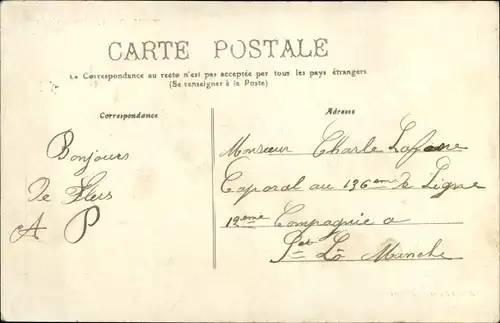 CARTE POSTALE
La Correspondance au recto n'est pas acceptée par tous les pays étrangers
(Se renseigner à la Poste)
Correspondance
Adresse
Bonjours
De Flers
A P
Monsieur Charle
Caporal au 136eme de Ligne
12eme Compagnie a
St Lô
Manche